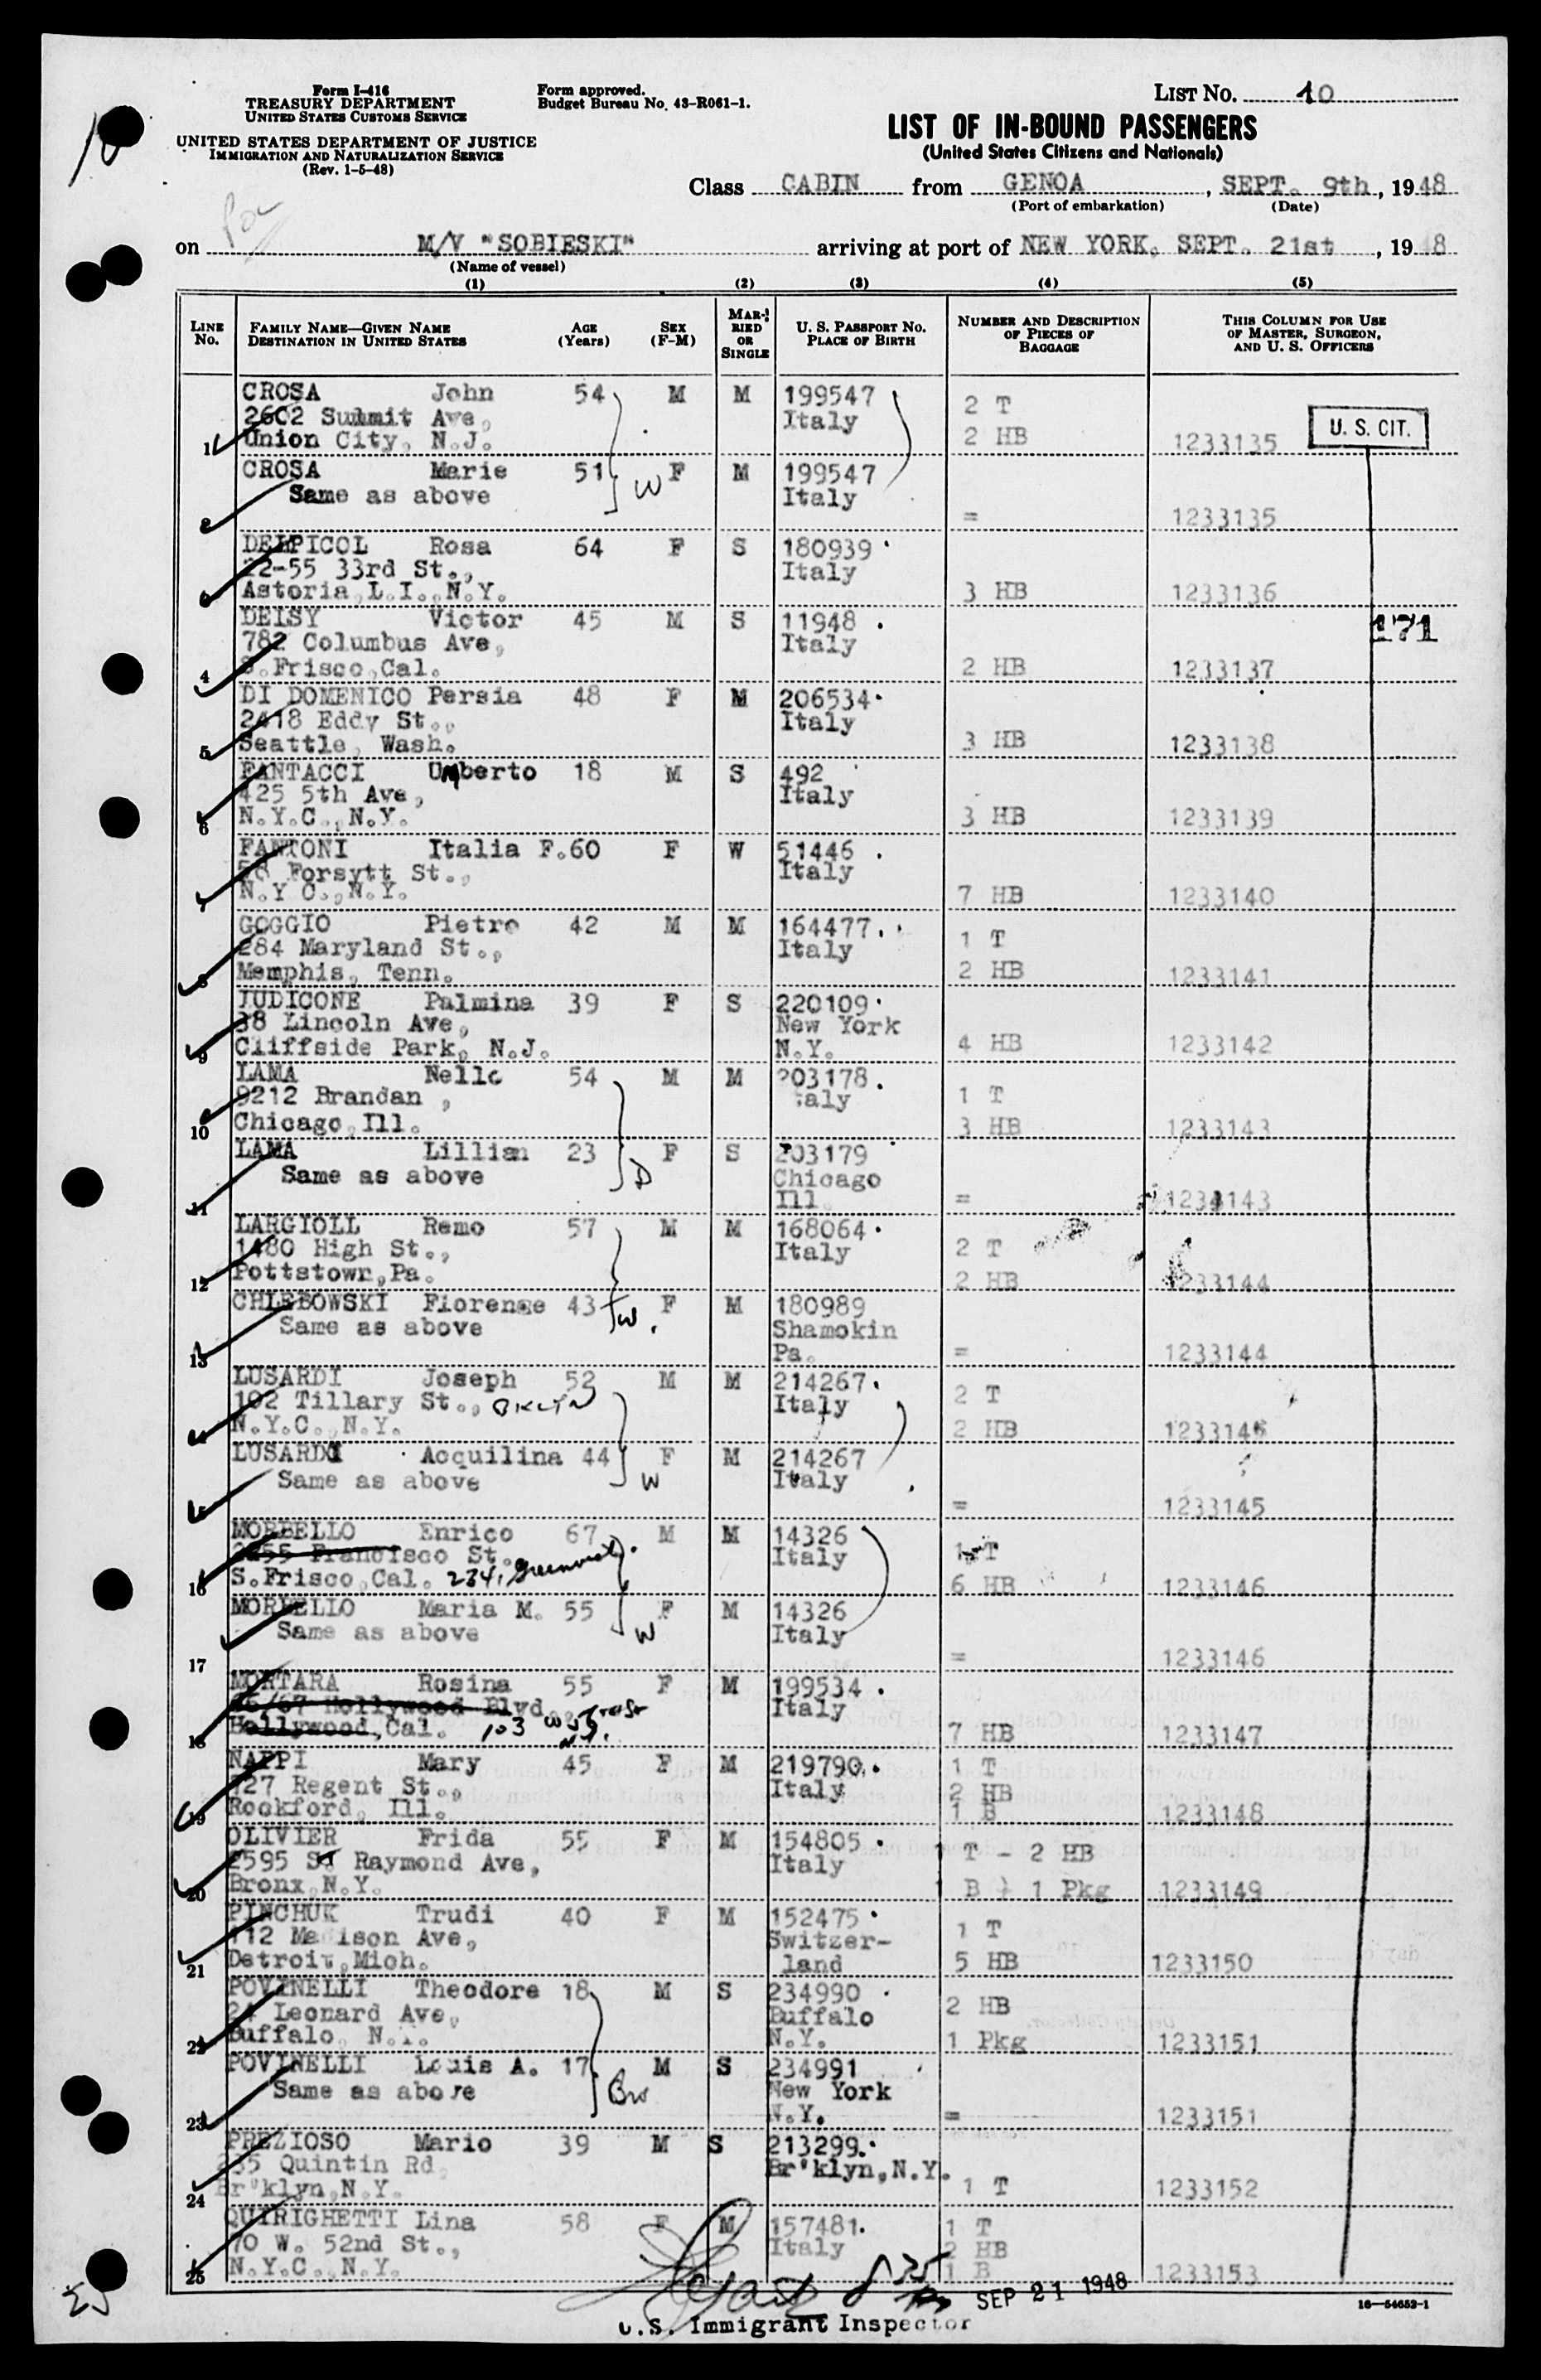 Form I-416
TREASURY DEPARTMENT
UNITED STATES CUSTOMS SERVICE
UNITED STATES DEPARTMENT OF JUSTICE
IMMIGRATION AND NATURALIZATION SERVICE
(Rev. 1-5-48)
Form approved.
Budget Bureau No. 43-R061-1.
LIST NO. 10
LIST OF IN-BOUND PASSENGERS
(United States Citizens and Nationals)
Class CABIN from GENOA, SEPT. 9th, 1948
(Port of embarkation) (Date)
on M/V "SOBIESKI" arriving at port of NEW YORK, SEPT. 21st, 1948
(Name of vessel)
(1) (2) (3) (4) (5)
LINE No. FAMILY NAME—GIVEN NAME DESTINATION IN UNITED STATES AGE (Years) SEX (F-M) MARRIED OR SINGLE U. S. PASSPORT NO. PLACE OF BIRTH NUMBER AND DESCRIPTION OF PIECES OF BAGGAGE THIS COLUMN FOR USE OF MASTER, SURGEON, AND U. S. OFFICERS
CROSA John 54 M M 199547
2602 Summit Ave, Italy 2 T
1 Union City, N.J. 2 HB 1233135 U. S. CIT.
CROSA Marie 51 W F M 199547
Same as above Italy
2 = 1233135
DELPICOL Rosa 64 F S 180939
22-55 33rd St., Italy
Astoria,L.I.,N.Y. 3 HB 1233136
DEISY Victor 45 M S 11948 171
782 Columbus Ave, Italy
4 S.Frisco,Cal. 2 HB 1233137
DI DOMENICO Persia 48 F M 206534
2418 Eddy St., Italy
5 Seattle, Wash. 3 HB 1233138
FANTACCI Umberto 18 M S 492
425 5th Ave, Italy
6 N.Y.C.,N.Y. 3 HB 1233139
FANTONI Italia F. 60 F W 51446
58 Forsytt St., Italy
7 N.Y C.,N.Y. 7 HB 1233140
GOGGIO Pietro 42 M M 164477
284 Maryland St., Italy 1 T
8 Memphis, Tenn. 2 HB 1233141
JUDICONE Palmina 39 F S 220109
38 Lincoln Ave, New York
9 Cliffside Park, N.J. N.Y. 4 HB 1233142
LAMA Nello 54 M M 203178
9212 Brandan , Italy 1 T
10 Chicago,Ill. 3 HB 1233143
LAMA Lillian 23 D F S 203179
Same as above Chicago
11 Ill = 1233143
LARGIOLL Remo 57 M M 168064
1480 High St., Italy 2 T
12 Pottstown,Pa. 2 HB 1233144
CHLEBOWSKI Fiorense 43 W. F M 180989
Same as above Shamokin
13 Pa. = 1233144
LUSARDI Joseph 52 M M 214267
102 Tillary St., BKLYN Italy 2 T
14 N.Y.C.,N.Y. 2 HB 1233145
LUSARDI Acquilina 44 W F M 214267
Same as above Italy
15 = 1233145
MORBELLO Enrico 67 M M 14326
2455 Francisco St. Italy 1 T
16 S.Frisco,Cal. 2341 Greenwich 6 HB 1233146
MORBELLO Maria M. 55 W F M 14326
Same as above Italy
17 = 1233146
MORTARA Rosina 55 F M 199534
Hollywood Blvd., Italy
18 Hollywood,Cal. 103 W N.Y. 7 HB 1233147
NAPPI Mary 45 F M 219790 1 T
727 Regent St., Italy 2 HB
19 Rockford, Ill. 1 B 1233148
OLIVIER Frida 55 F M 154805 1 T - 2 HB
2595 St Raymond Ave, Italy
20 Bronx,N.Y. 1 B + 1 Pkg 1233149
PINCHUK Trudi 40 F M 152475
112 Madison Ave, Switzer- 1 T
21 Detroit,Mich. land 5 HB 1233150
POVINELLI Theodore 18 M S 234990
24 Leonard Ave, Buffalo 2 HB
22 Buffalo, N.Y. N.Y. 1 Pkg 1233151
POVINELLI Louis A. 17 Bro M S 234991
Same as above New York
23 N.Y. = 1233151
PREZIOSO Mario 39 M S 213299
235 Quintin Rd, Br'klyn,N.Y.
24 Br'klyn,N.Y. 1 T 1233152
QUIRIGHETTI Lina 58 F M 157481 1 T
70 W. 52nd St., Italy 2 HB
25 N.Y.C.,N.Y. 1 B 1233153
25 SEP 21 1948 16—54652-1
U.S. Immigrant Inspector